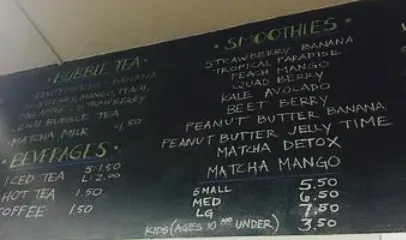 • BUBBLE TEA •
BANANA
BLUEBERRY, MANGO, PEACH,
STRAWBERRY
BUBBLE TEA
MATCHA MILK 4.50
• BEVERAGES •
ICED TEA S 1.50
L 2.00
HOT TEA 1.50
COFFEE 1.50
• SMOOTHIES •
STRAWBERRY BANANA
TROPICAL PARADISE
PEACH MANGO
QUAD BERRY
KALE AVOCADO
BEET BERRY
PEANUT BUTTER BANANA
PEANUT BUTTER JELLY TIME
MATCHA DETOX
MATCHA MANGO
SMALL 5.50
MED 6.50
LG 7.50
KIDS (AGES 10 AND UNDER) 3.50